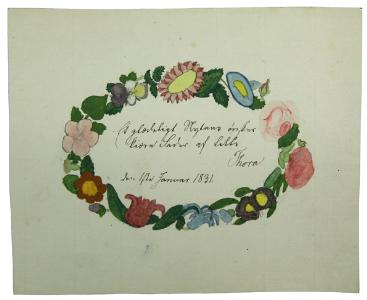 Et glædeligt Nytaar ønsker
kiære Fader af lille
Thora
den 1ste Januar 1831.